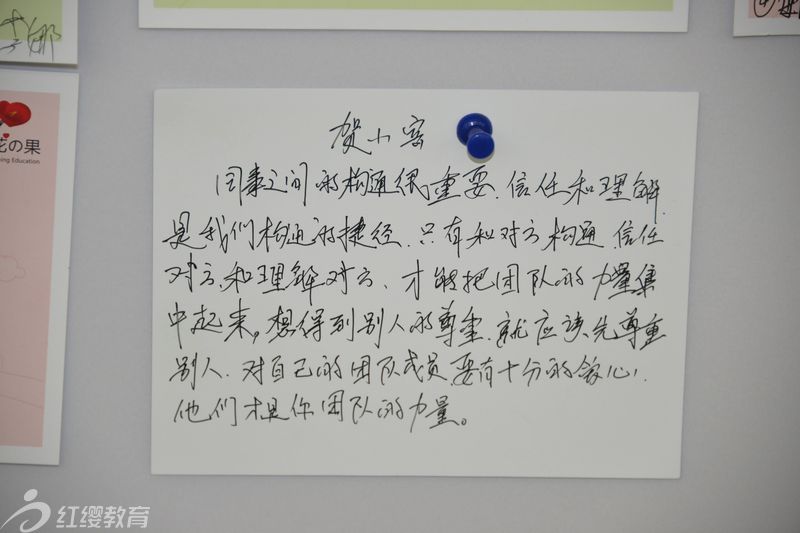 娜
花の果
ing Education
贺小容
同事之间的构通很重要.信任和理解
是我们构通的捷径.只有和对方构通.信任
对方.和理解对方.才能把团队的力量集
中起来,想得到别人的尊重.就应该先尊重
别人.对自己的团队成员要有十分的信心.
他们才是你团队的力量。
红缨教育